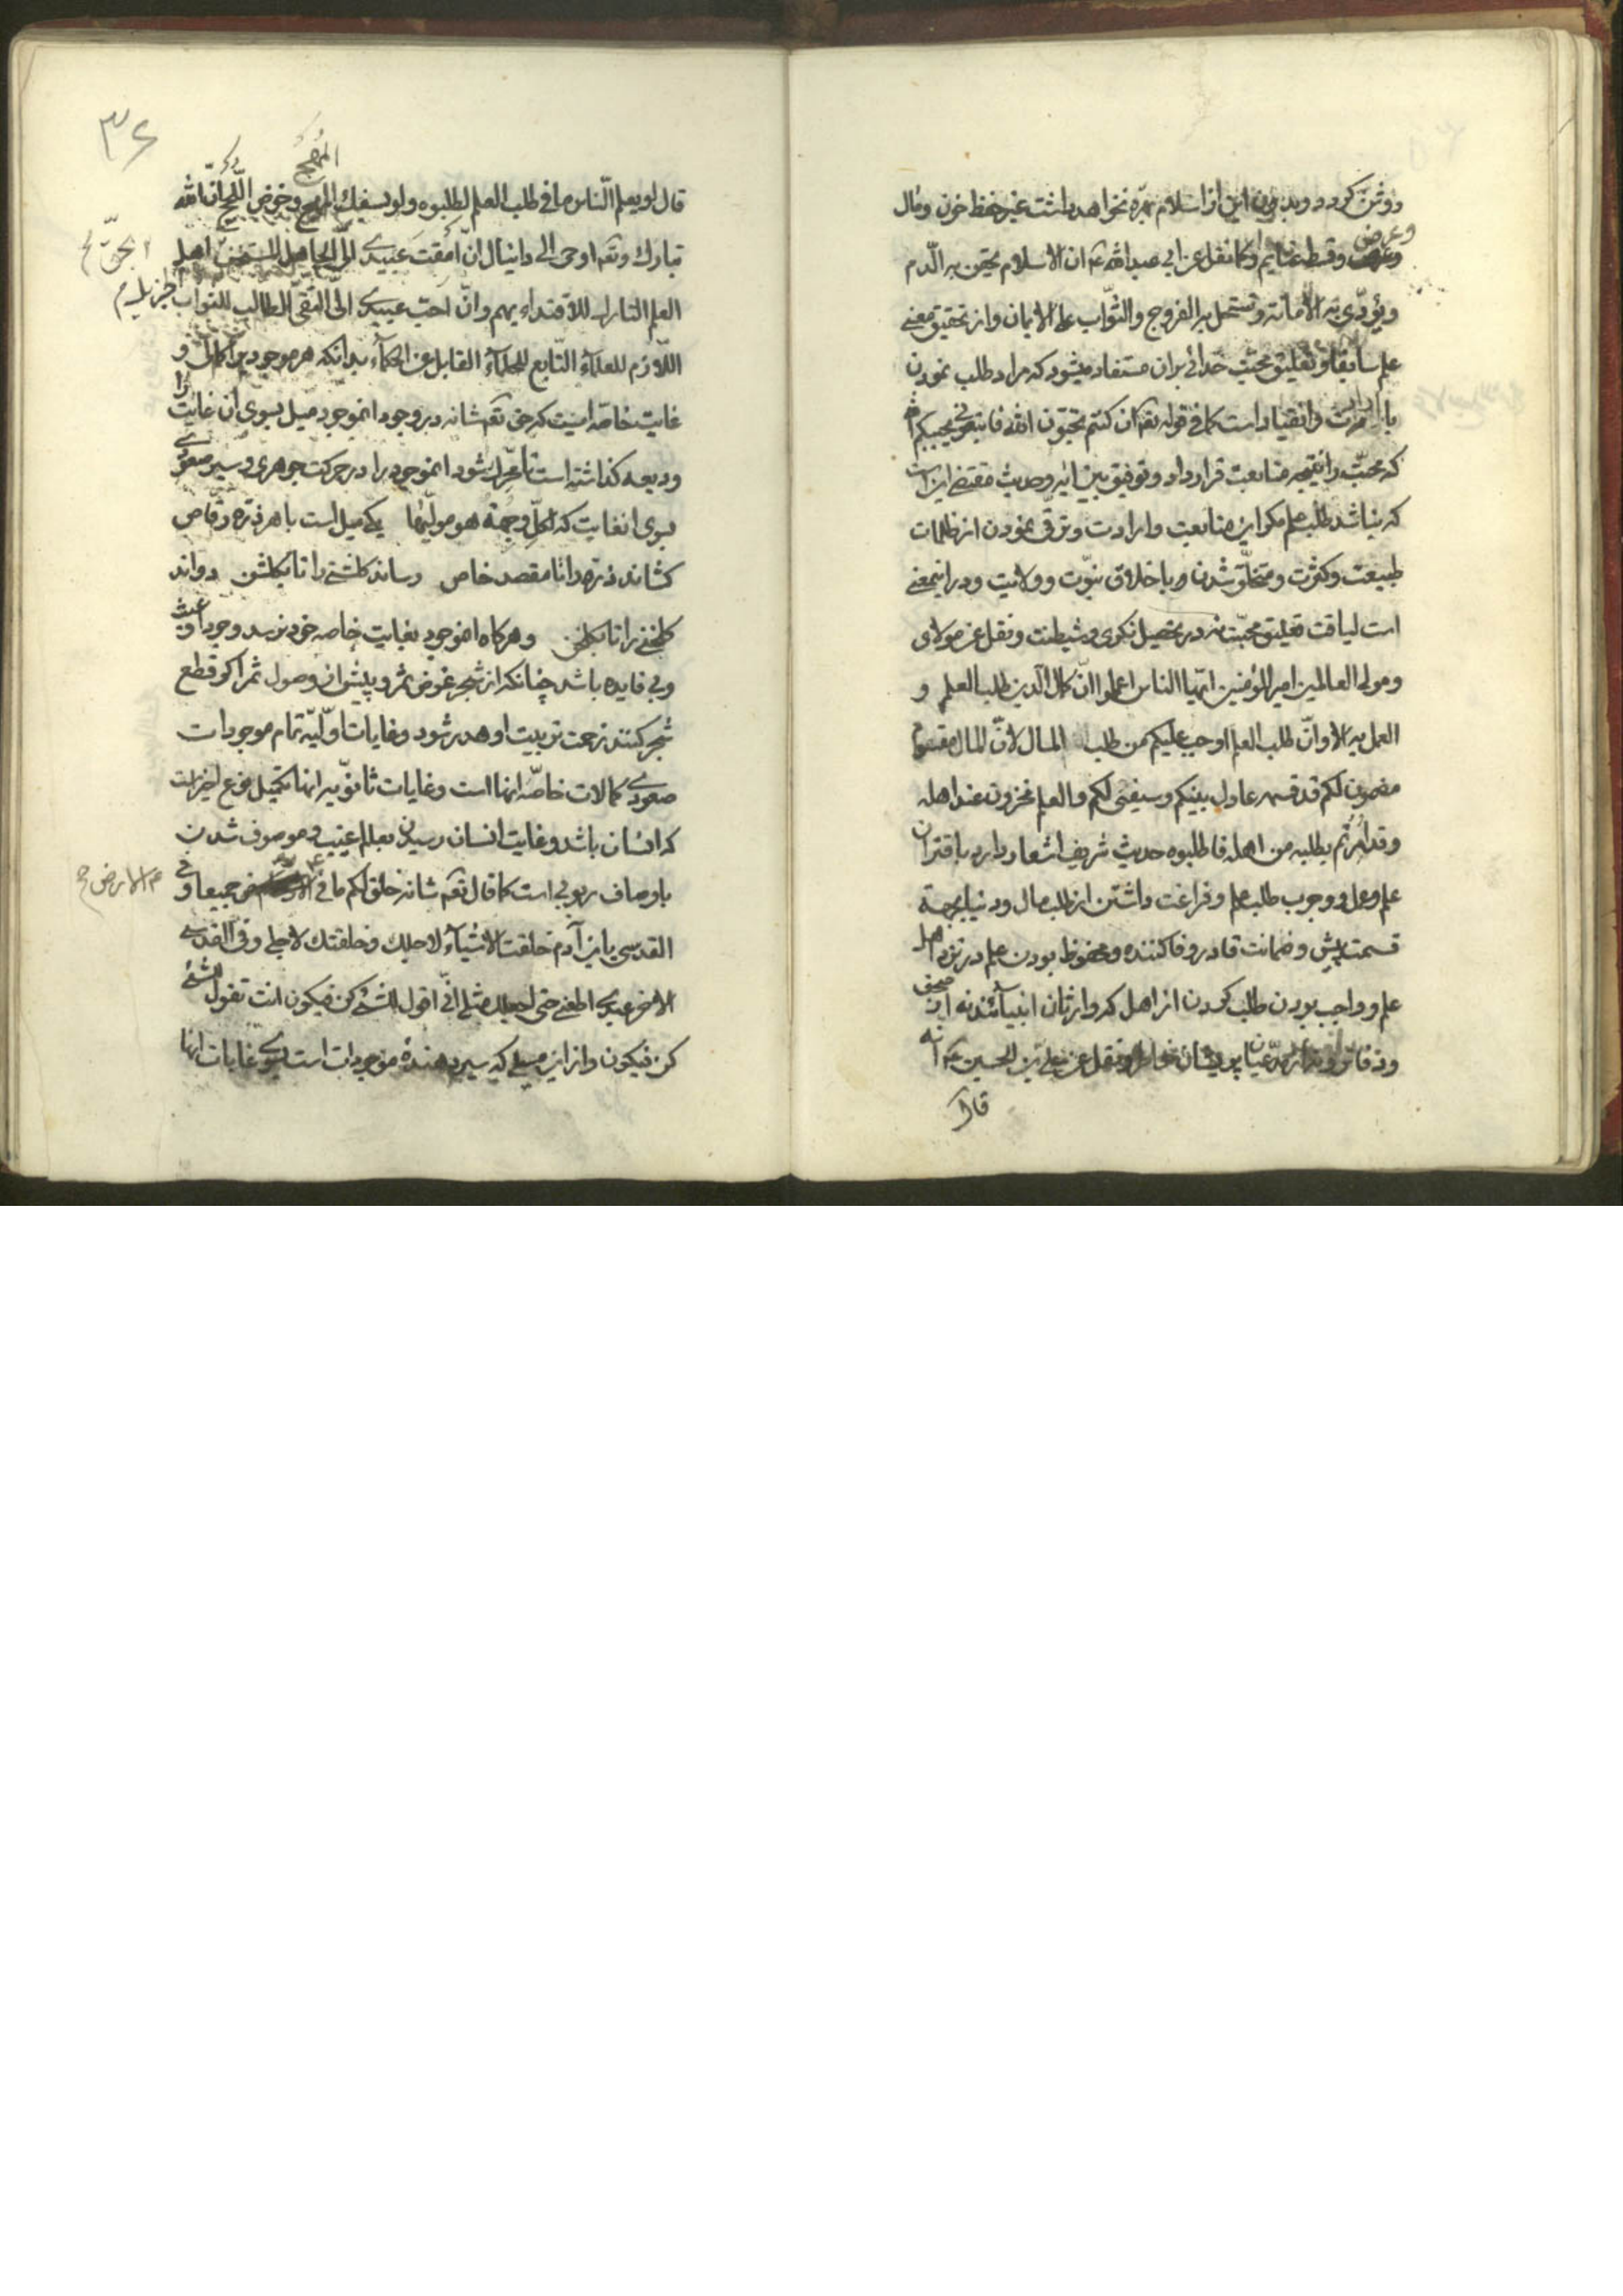 روشن کردد وبدون این از اسلام ثمره نخواهد داشت غیر حفظ خون ومال
وعرض
وقسط غنایم کما نقل عن ابی عبدالله ع ان الاسلام یحقن به الدّم
ویؤدّی به الأمانة وتستحل به الفروج والثّواب علی الایمان واز تحقیق معنی
علم سابقا وتعلیق محبّت خدائی بران مستفاد میشود که مراد طلب نمودن
با ارادت وانقیاد است کما فی قوله تعـ ان کنتم تحبّون الله فاتبعونی یحببکم الله
که محبّت را نتیجه متابعت قرار داد وتوفیق بین ایه وحدیث مقتضی این است
که نباشد طلب علم مکر این متابعت وارادت وترقی نمودن از ظلمات
طبیعت وکثرت ومتخلّق شدن باخلاق نبوّت وولایت ودر اینمعنی
است لیاقت تعلیق محبّت نه در تحصیل نکری وشیطنت ونقل عن مولای
ومولی العالمین امیرالمؤمنین ایّها الناس اعلموا انّ کمال الدین طلب العلم و
العمل به الا وانّ طلب العلم اوجب علیکم من طلب المال لانّ المال مقسوم
مضمون لکم قد قسمه عادل بینکم وسیفی لکم والعلم مخزون عند اهله
وقد امرتم بطلبه من اهله فاطلبوه حدیث شریف اشعار دارد باقتران
علم وعمل ووجوب طلب علم وفراغت داشتن از طلب مال ودنیا بجهة
قسمت پیش وضمانت قادر وفا کننده ومحفوظ بودن علم در نزد اهل
علم وواجب بودن طلب کردن از اهل که وارثان انبیآئند نه از صحف
ودفاتر ونه از مدّعیان پریشان خاطر ونقل عن علی بن الحسین ع انه
قال
۳۶
قال لو یعلم النّاس ما فی طلب العلم لطلبوه ولو بسفك المهج وخوض اللّجج انّ الله
المُهَج
تبارك وتعـ اوحی الی دانیال انّ امقت عبیدی الیّ الجاهل المستخفّ اهل
بحقّ
العلم التارك للاقتداء بهم وانّ احبّ عبیدی الیّ التقیّ الطالب للثواب الجزیل
اللّازم للعلمآء التّابع للحلمآء القابل عن الحکمآء بدانکه هر موجودیرا کمال و
غایت خاصّه ایست که حق تعـ شانه در وجود انموجود میل بسوی ان غایت را
ودیعه کذاشته است تا محرّك شود انموجود را در حرکت جوهری وسیر صعودی
بسوی انغایت که لکلّ وجهة هو مولّیها یکی میل است با هر ذرّه رقّاص
کشاند ذرّه را تا مقصد خاص رساند کلشنی را تا بکلشن دواند
کلخنی را تا بکلخن وهرکاه انموجود بغایت خاصه خود نرسد وجود او عبث
وبی فایده باشد چنانکه از شجر غرض ثمر وپیش از وصول ثمر اکر قطع
شجر کنند زحمت تربیت او هدر شود وغایات اوّلیّه تمام موجودات
صعودی کمالات خاصّه انها است وغایات ثانویّه انها تکمیل نوع اخیر است
که انسان باشد وغایت انسان رسیدن بعالم غیب وموصوف شدن
باوصاف ربوبی است کما قال تعـ شانه خلق لکم ما فی الارض جمیعا وفی
الارض
القدسی یا بن آدم خلقت الاشیآء لاجلك وخلقتك لاجلی وفی القدسی
الاخر عبدی اطعنی حتی اجعلك مثلی انّی اقول للشیء کن فیکون انت تقول للشیء
کن فیکون واز این میلی که سیر دهندهٔ موجودات است بسوی غایات انها